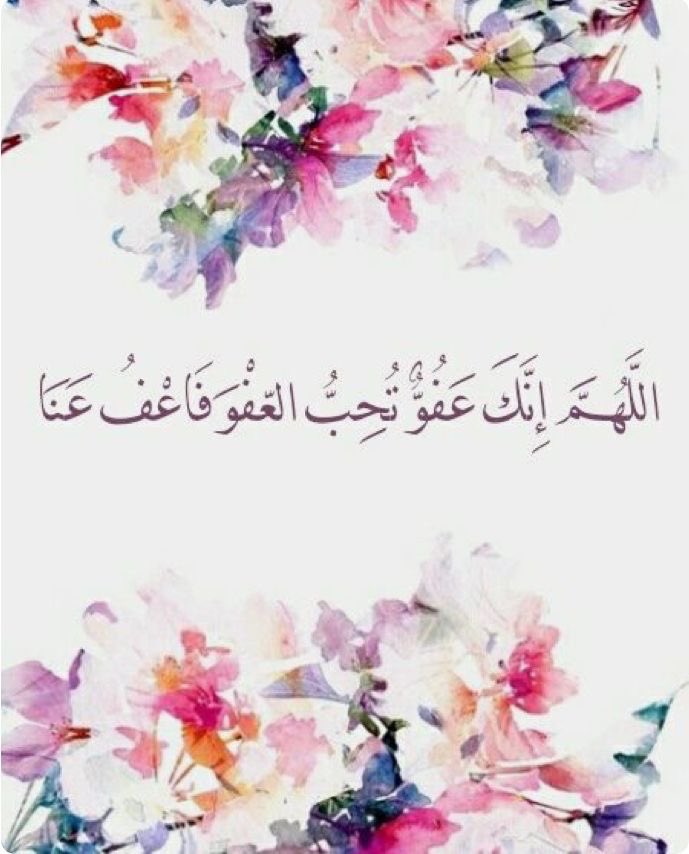 اللَّهُمَّ إِنَّكَ عَفُوٌّ تُحِبُّ العَفْوَ فَاعْفُ عَنَا